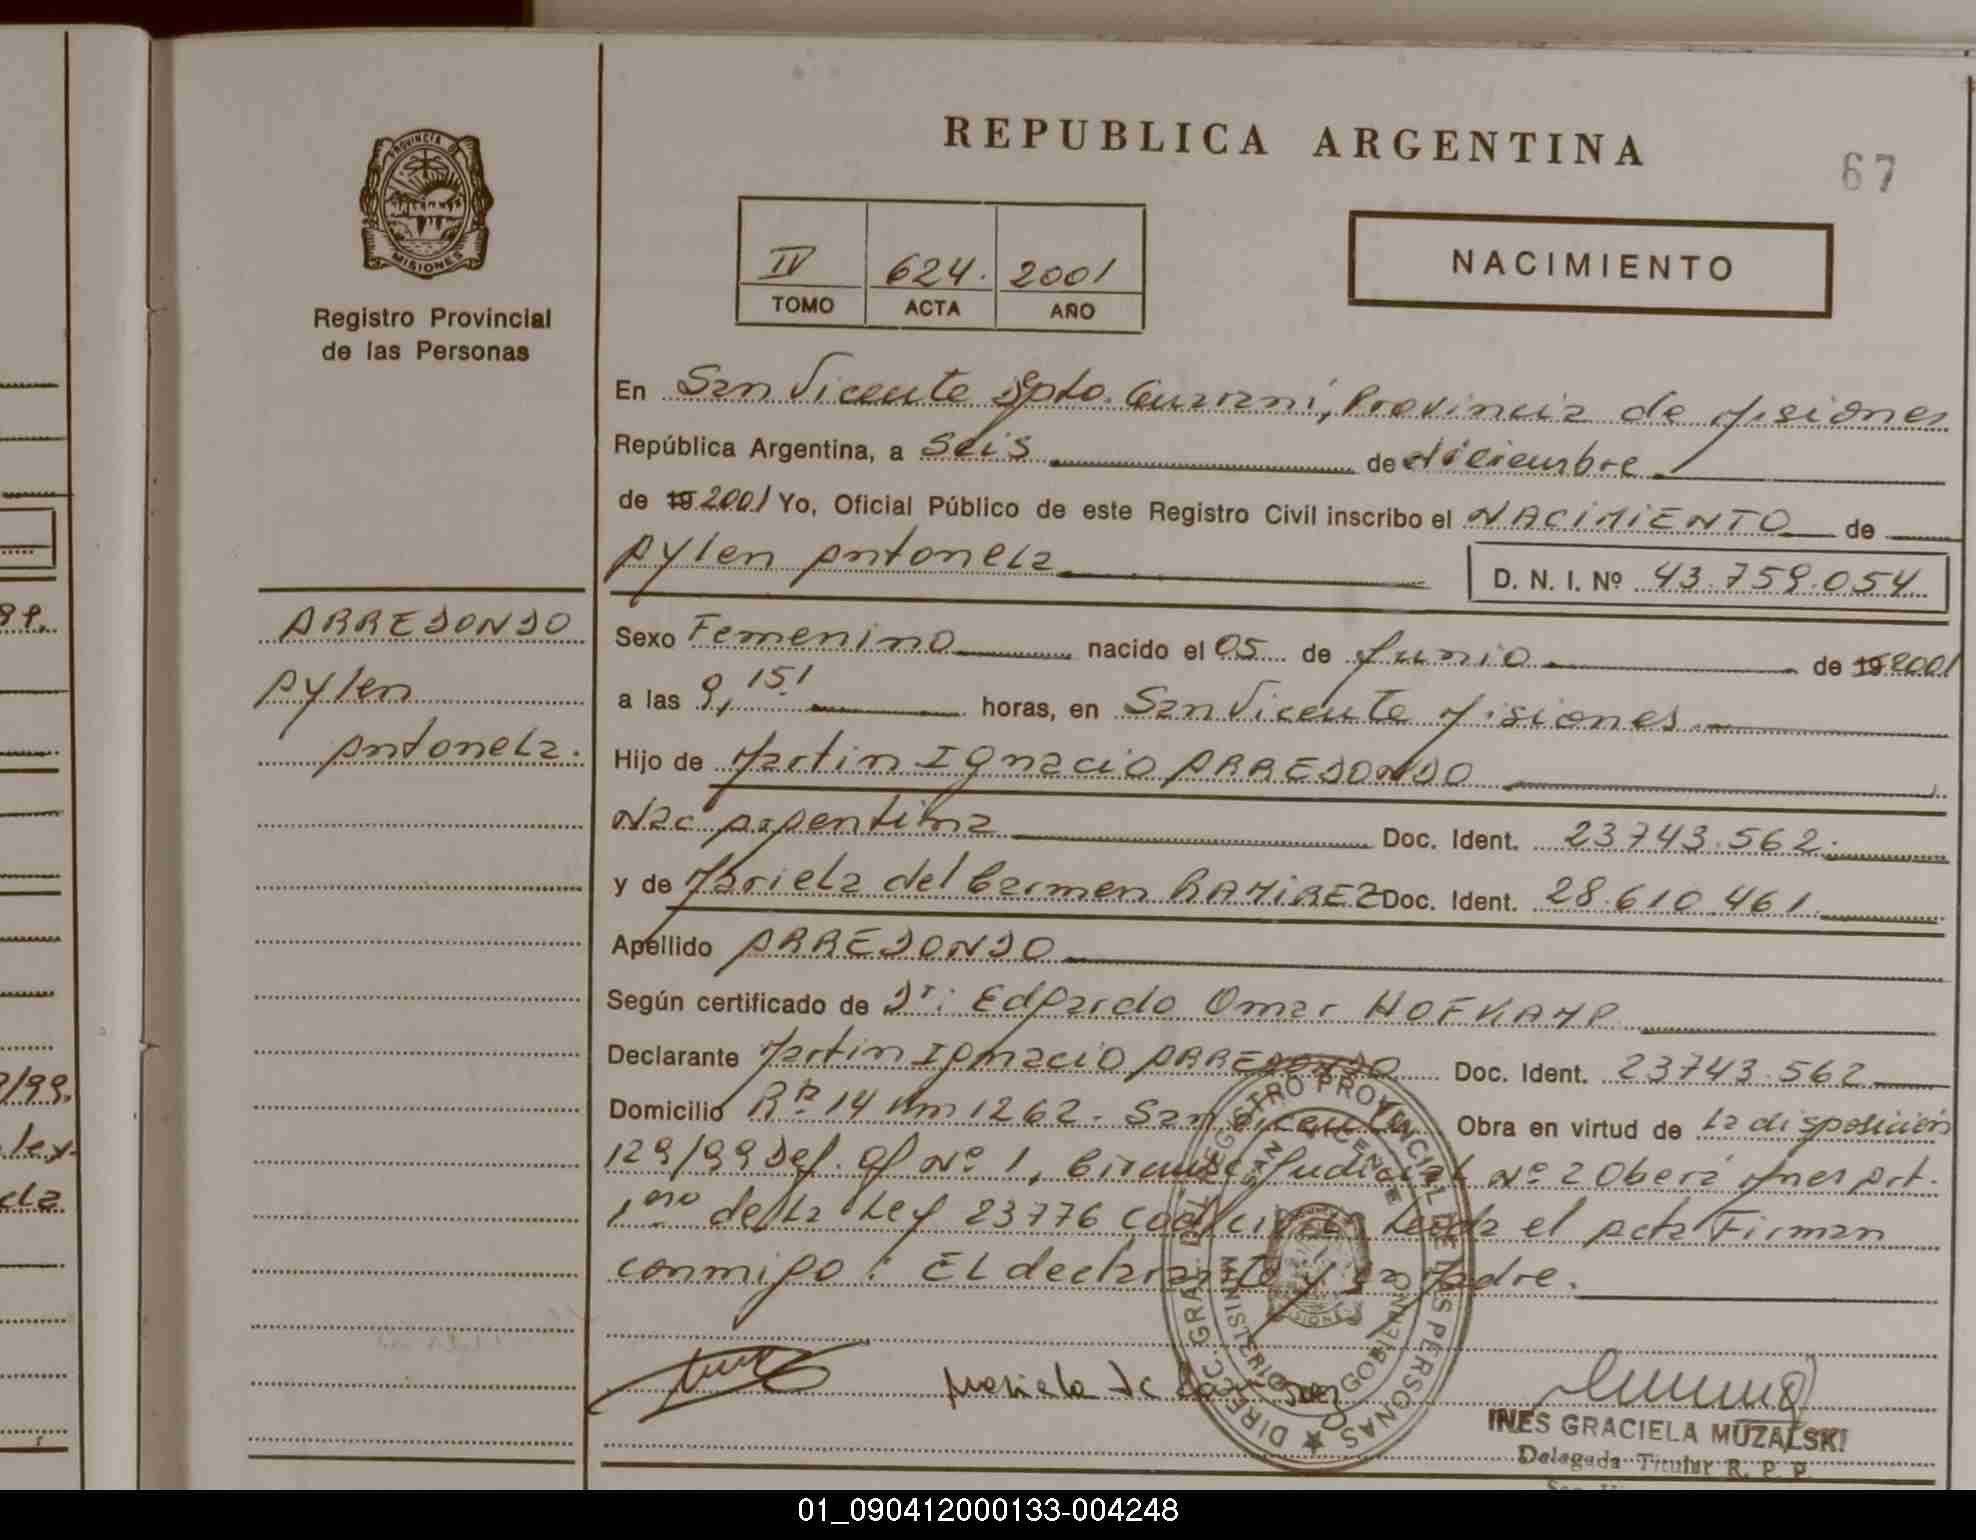 REPUBLICA ARGENTINA
67
PROVINCIA DE
MISIONES
Registro Provincial
de las Personas
IV 624. 2001
TOMO ACTA AÑO
NACIMIENTO
En San Vicente Dpto. Guarani, Provincia de Misiones
República Argentina, a Seis de diciembre
de 19 2001 Yo, Oficial Público de este Registro Civil inscribo el NACIMIENTO de
Aylen Antonela
D. N. I. Nº 43.759.054
ARREDONDO
Aylen
Antonela.
Sexo Femenino nacido el 05 de Junio de 19 2001
a las 9,15 horas, en San Vicente Misiones
Hijo de Martin Ignacio ARREDONDO
Nac Argentina Doc. Ident. 23743.562.
y de Mariela del Carmen RAMIREZ Doc. Ident. 28.610.461.
Apellido ARREDONDO
Según certificado de Dr: Edgardo Omar HOFKAMP
Declarante Martin Ignacio ARREDONDO Doc. Ident. 23743.562
Domicilio R.N. 14 Km 1262. San Vicente Obra en virtud de la disposición
129/99 Def. Of Nº 1, Judicial Nº 2 Oberá Mnes Art.
1ero de la Ley 23776 Leida el acta Firman
conmigo: El declarante y la Madre.
DIRECC. GRAL. DEL REGISTRO PROVINCIAL DE LAS PERSONAS
SAN VICENTE
MINISTERIO DE GOBIERNO
MISIONES
INES GRACIELA MUZALSKI
Delegada Titular R. P. P.
99.
/99.
ley
01_090412000133-004248